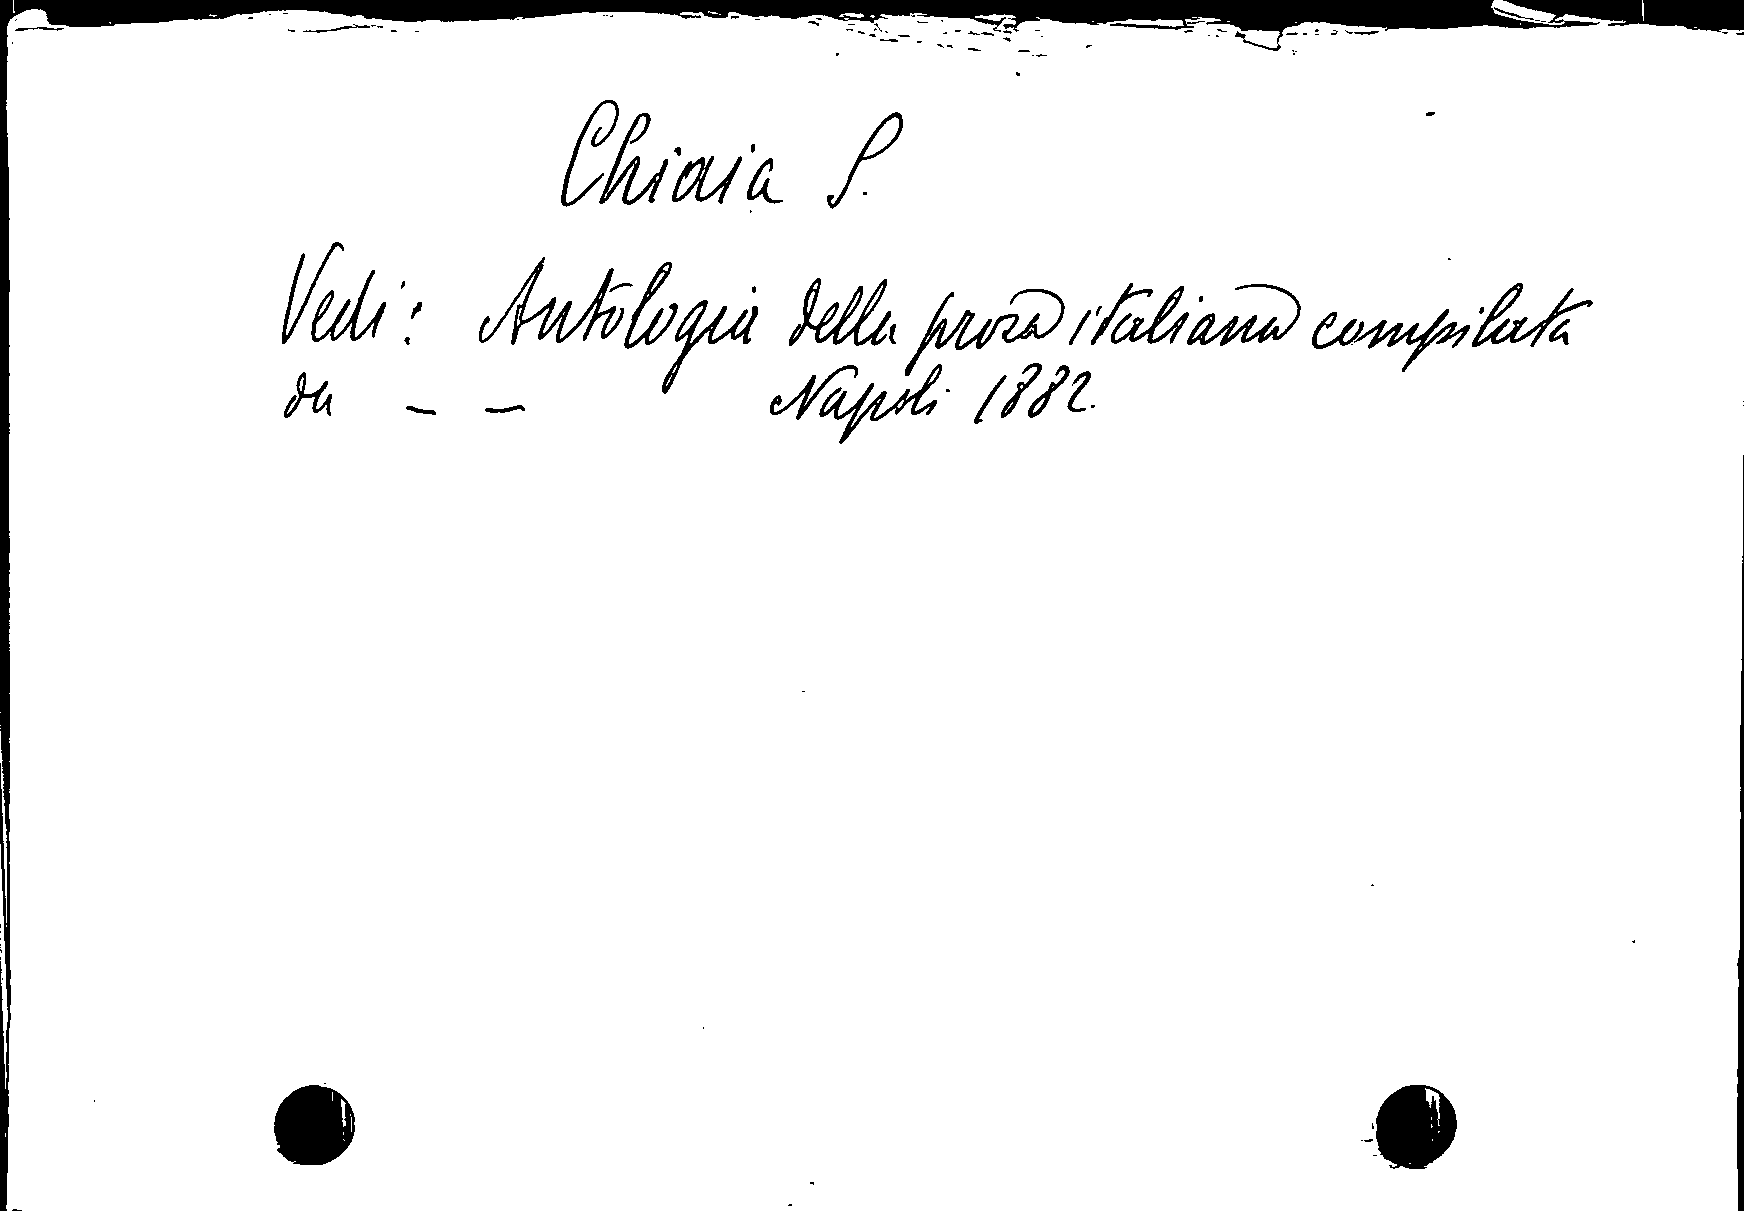 Chiaia S.
Vedi: Antologia della prosa italiana compilata
da – – Napoli 1882.